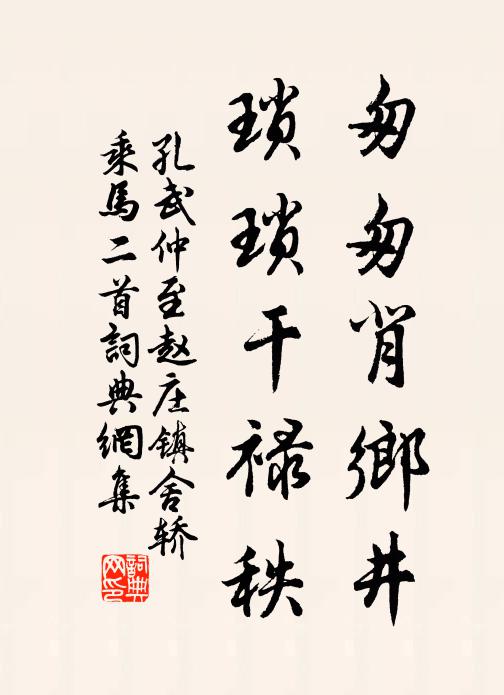 匆匆背鄉井
瑣瑣干禄秩
孔武仲至赵庄鎮舍轿
乘馬二首詞典網集
詞典
网印